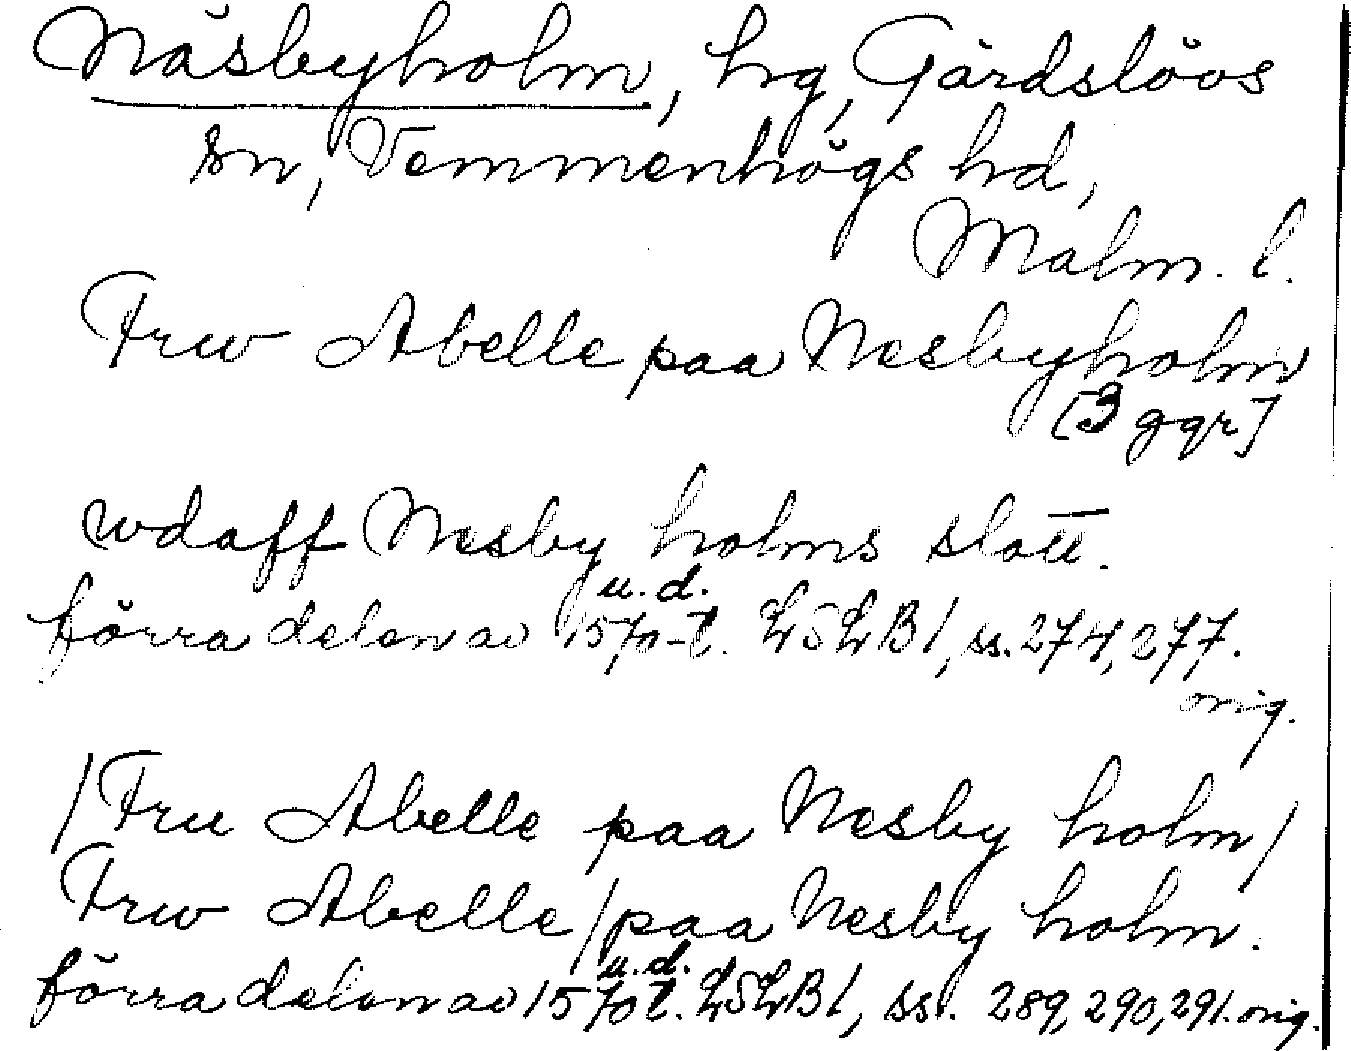 Näsbyholm, hg, Gärdslövs
sn, Vemmenhögs hd,
Malm. l.
Frw Abelle paa Nesbyholm
[3 ggr]
wdaff Nesby holms slott.
u.d.
förra delen av 1570-t. LSLB1, ss. 274, 277.
orig.
/Fru Abelle paa Nesby holm/
Frw Abelle/paa Nesby holm.
u.d.
förra delen av 1570 t. LSLB1, ss. 289, 290, 291. orig.